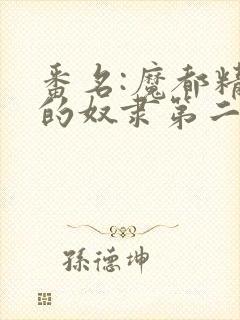 番名:魔都精
的奴隶第二
孫德坤